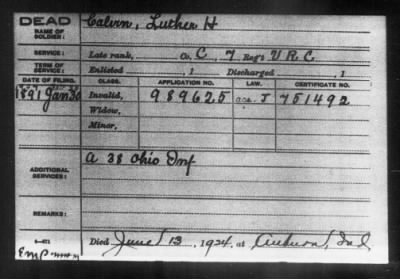 DEAD
NAME OF SOLDIER: Calvin, Luther H
SERVICE: Late rank, Co. C, 7 Reg't V R C
TERM OF SERVICE: Enlisted , 1 Discharged , 1
DATE OF FILING. CLASS. APPLICATION NO. LAW. CERTIFICATE NO.
1891 Jan 30 Invalid, 989625 J 751492
Widow,
Minor,
ADDITIONAL SERVICES: A 38 Ohio Inf
REMARKS:
Died June 13, 1924, at Auburn, Ind.